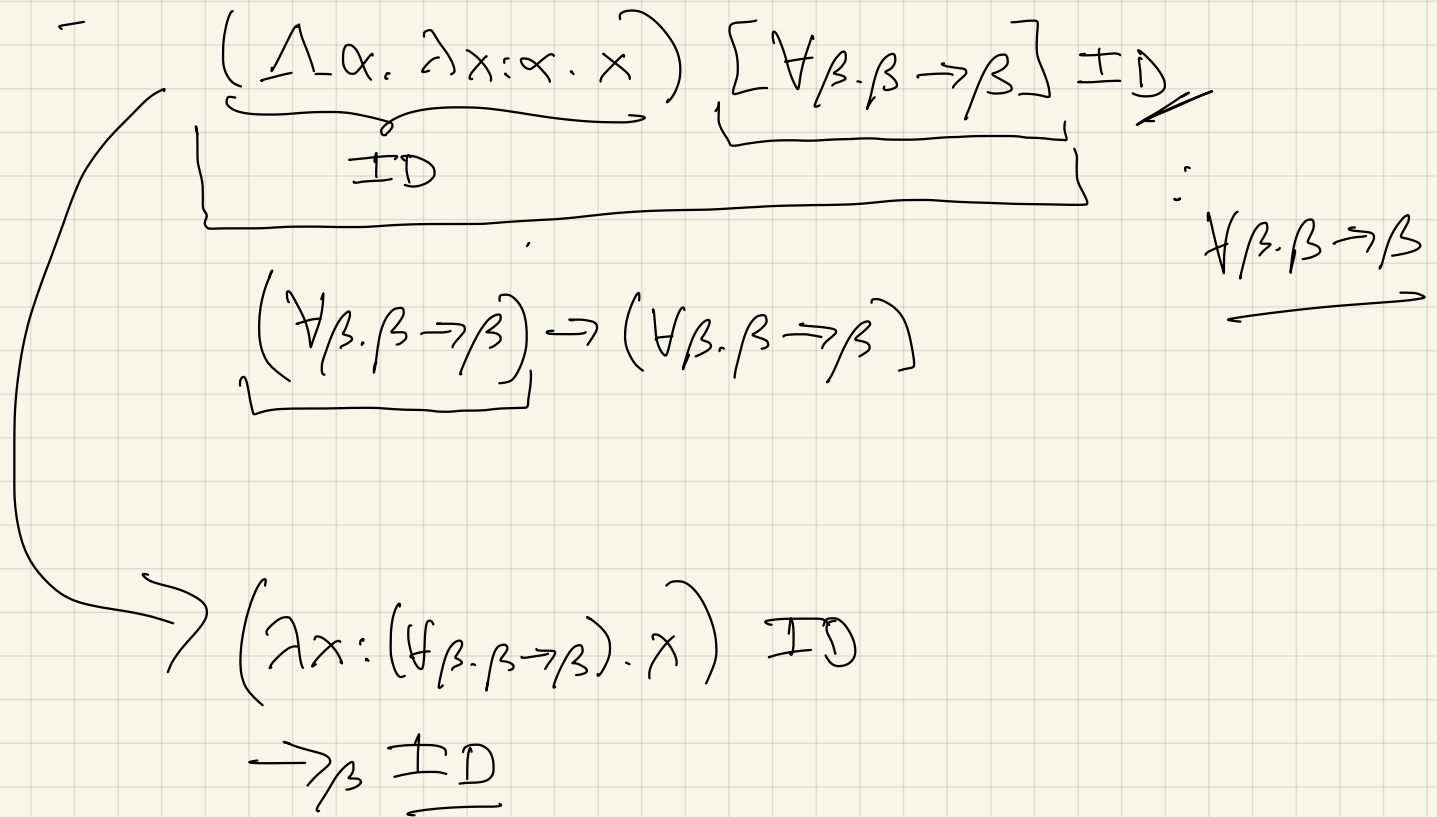 (Λα. λx:α. x) [∀β.β→β] ID
ID
: ∀β.β→β
(∀β.β→β) → (∀β.β→β)
(λx:(∀β.β→β).x) ID
→β ID